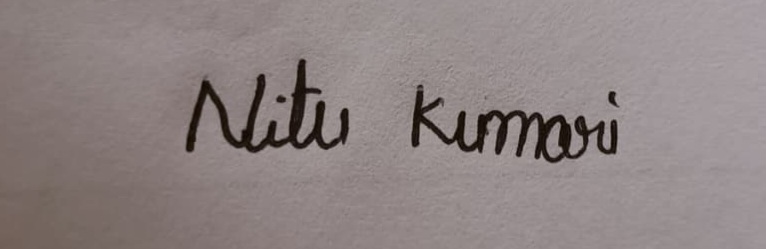 Nitu Kumari